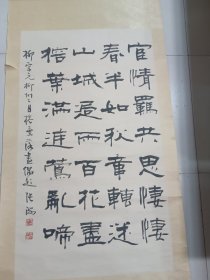 宦情羈共思悽悽
春半如秋意轉迷
山城過雨百花盡
榕葉滿庭鶯亂啼
柳宗元柳州二月榕葉落盡偶題